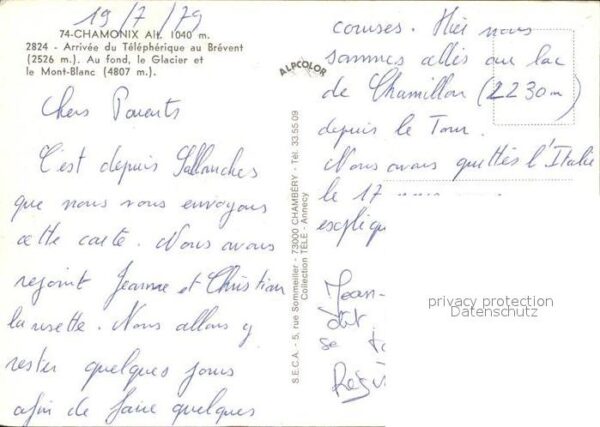 19/7/79
74-CHAMONIX Alt. 1040 m.
2824 - Arrivée du Téléphérique au Brévent
(2526 m.). Au fond, le Glacier et
le Mont-Blanc (4807 m.).
Chers Parents
C'est depuis Sallanches
que nous vous envoyons
cette carte. Nous avons
rejoint Jeanne et Christian
la
Nous allons y
rester quelques jours
afin de faire quelques
ALPCOLOR
S.E.C.A. - 5, rue Sommeiller - 73000 CHAMBÉRY - Tél. 33.55.09
Collection TÉLÉ - Annecy
courses. Hier nous
sommes allés au lac
de Chamillon (2230m)
depuis le Tour.
Nous avons quittés l'Italie
le 17
expliqu
Jean-
privacy protection
Datenschutz
se